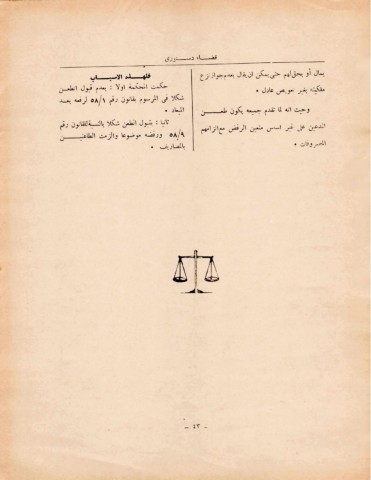 قضاء دستوري
بمال أو بحق لهم حتى يمكن أن يقال بعدم جواز نزع
ملكيته بغير تعويض عادل .
وحيث انه لما تقدم جميعه يكون طعن
المدعين على غير اساس متعين الرفض مع الزامهم
المصروفات .
فلهذه الاسباب
حكمت المحكمة اولا : بعدم قبول الطعن
شكلا في المرسوم بقانون رقم ٥٨/٩ لرفعه بعد
الميعاد
ثانيا : بقبول الطعن شكلا بالنسبة للقانون رقم
٥٨/٩ ورفضه موضوعا والزمت الطاعنين
بالمصاريف .
- ٤٣ -